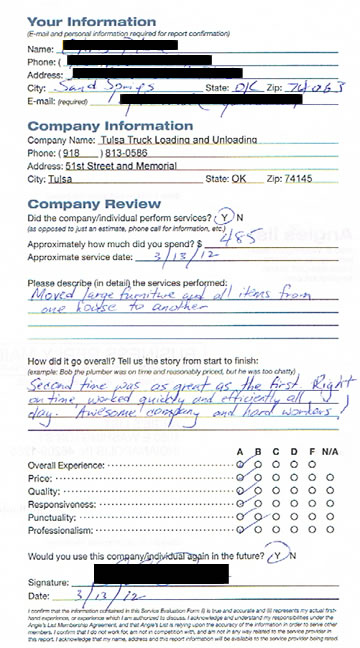 Your Information
(E-mail and personal information required for report confirmation)
Name:
Phone: (
Address:
City: Sand Springs State: OK Zip: 74063
E-mail: (required)
Company Information
Company Name: Tulsa Truck Loading and Unloading
Phone: (918 ) 813-0586
Address: 51st Street and Memorial
City: Tulsa State: OK Zip: 74145
Company Review
Did the company/individual perform services? Y N
(as opposed to just an estimate, phone call for information, etc.)
Approximately how much did you spend? $ 485
Approximate service date: 3/13/12
Please describe (in detail) the services performed:
Moved large furniture and all items from
one house to another
How did it go overall? Tell us the story from start to finish:
(example: Bob the plumber was on time and reasonably priced, but he was too chatty)
Second time was as great as the first. Right
on time, worked quickly and efficiently all
day. Awesome company and hard workers!
A B C D F N/A
Overall Experience:
Price:
Quality:
Responsiveness:
Punctuality:
Professionalism:
Would you use this company/individual again in the future? Y N
Signature:
Date: 3/13/12
I confirm that the information contained in this Service Evaluation Form (i) is true and accurate and (ii) represents my actual first-
hand experience, or experience which I am authorized to discuss. I acknowledge and understand my responsibilities under the
Angie's List Membership Agreement, and that Angie's List is relying upon the accuracy of the information in order to serve other
members. I confirm that I do not work for, am not in competition with, and am not in any way related to the service provider in
this report. I acknowledge that my name, address and this report information will be available to the service provider being rated.